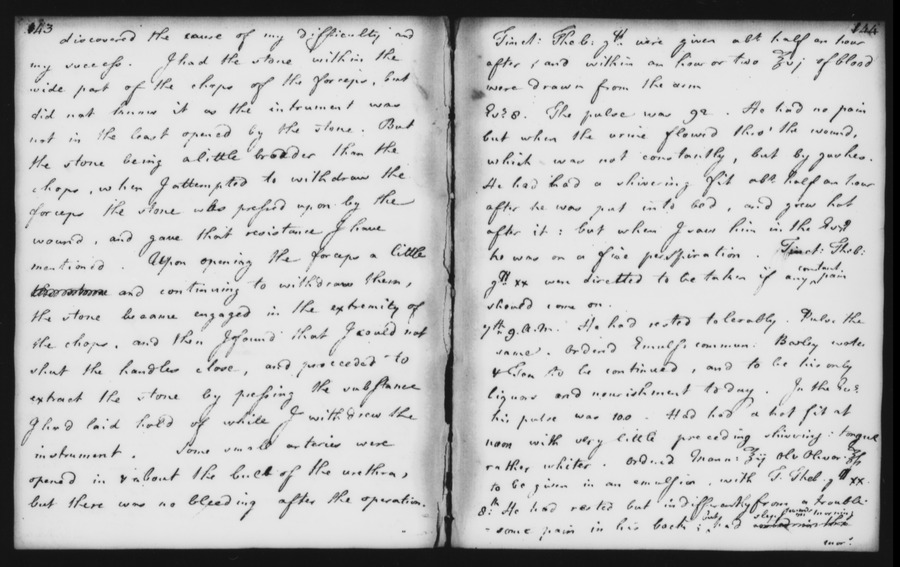 143
discovered the cause of my difficulty and
my success. I had the stone within the
wide part of the chops of the forceps, but
did not know it as the intrument was
not in the least opened by the stone. But
the stone being a little broader than the
chops, when I attempted to withdraw the
forceps the stone was pressed upon by the
wound, and gave that resistance I have
mentioned. Upon opening the forceps a little
and continuing to withdraw them,
the stone became engaged in the extremity of
the chops, and then I found that I could not
shut the handles close, and proceeded to
extract the stone by pressing the substance
I had laid hold of while I withdrew the
instrument. Some small arteries were
opened in & about the bulb of the urethra,
but there was no bleeding after the operation.
144
Tinct: Theb: gtt. were given abt. half an hour
after; and within an hour or two ℥vj of blood
were drawn from the arm
Evg 8. The pulse was 92. He had no pain
but when the urine flowed thro' the wound,
which was not constantly, but by gushes.
He had had a shivering fit abt. half an hour
after he was put into bed, and grew hot
after it: but when I saw him in the Evg.
he was in a fine perspiration. Tinct: Theb:
gtt xx were directed to be taken if any constant pain
should come on.
7th. 9. A.M. He had rested tolerably. Pulse the
same. Ordered Emuls: commun: Barley water
& Tea to be continued, and to be his only
liquor and nourishment to day. In the Evg.
his pulse was 100. Had had a hot fit at
noon with very little preceding shivering: tongue
rather whiter. Ordered Mann: ℥ij Ole Olivar: ℥ſs
to be given in an emulsion, with T. Theb. gtt xx.
8th. He had rested but indifferently from a trouble-
-some pain in his back; had slept towards morning